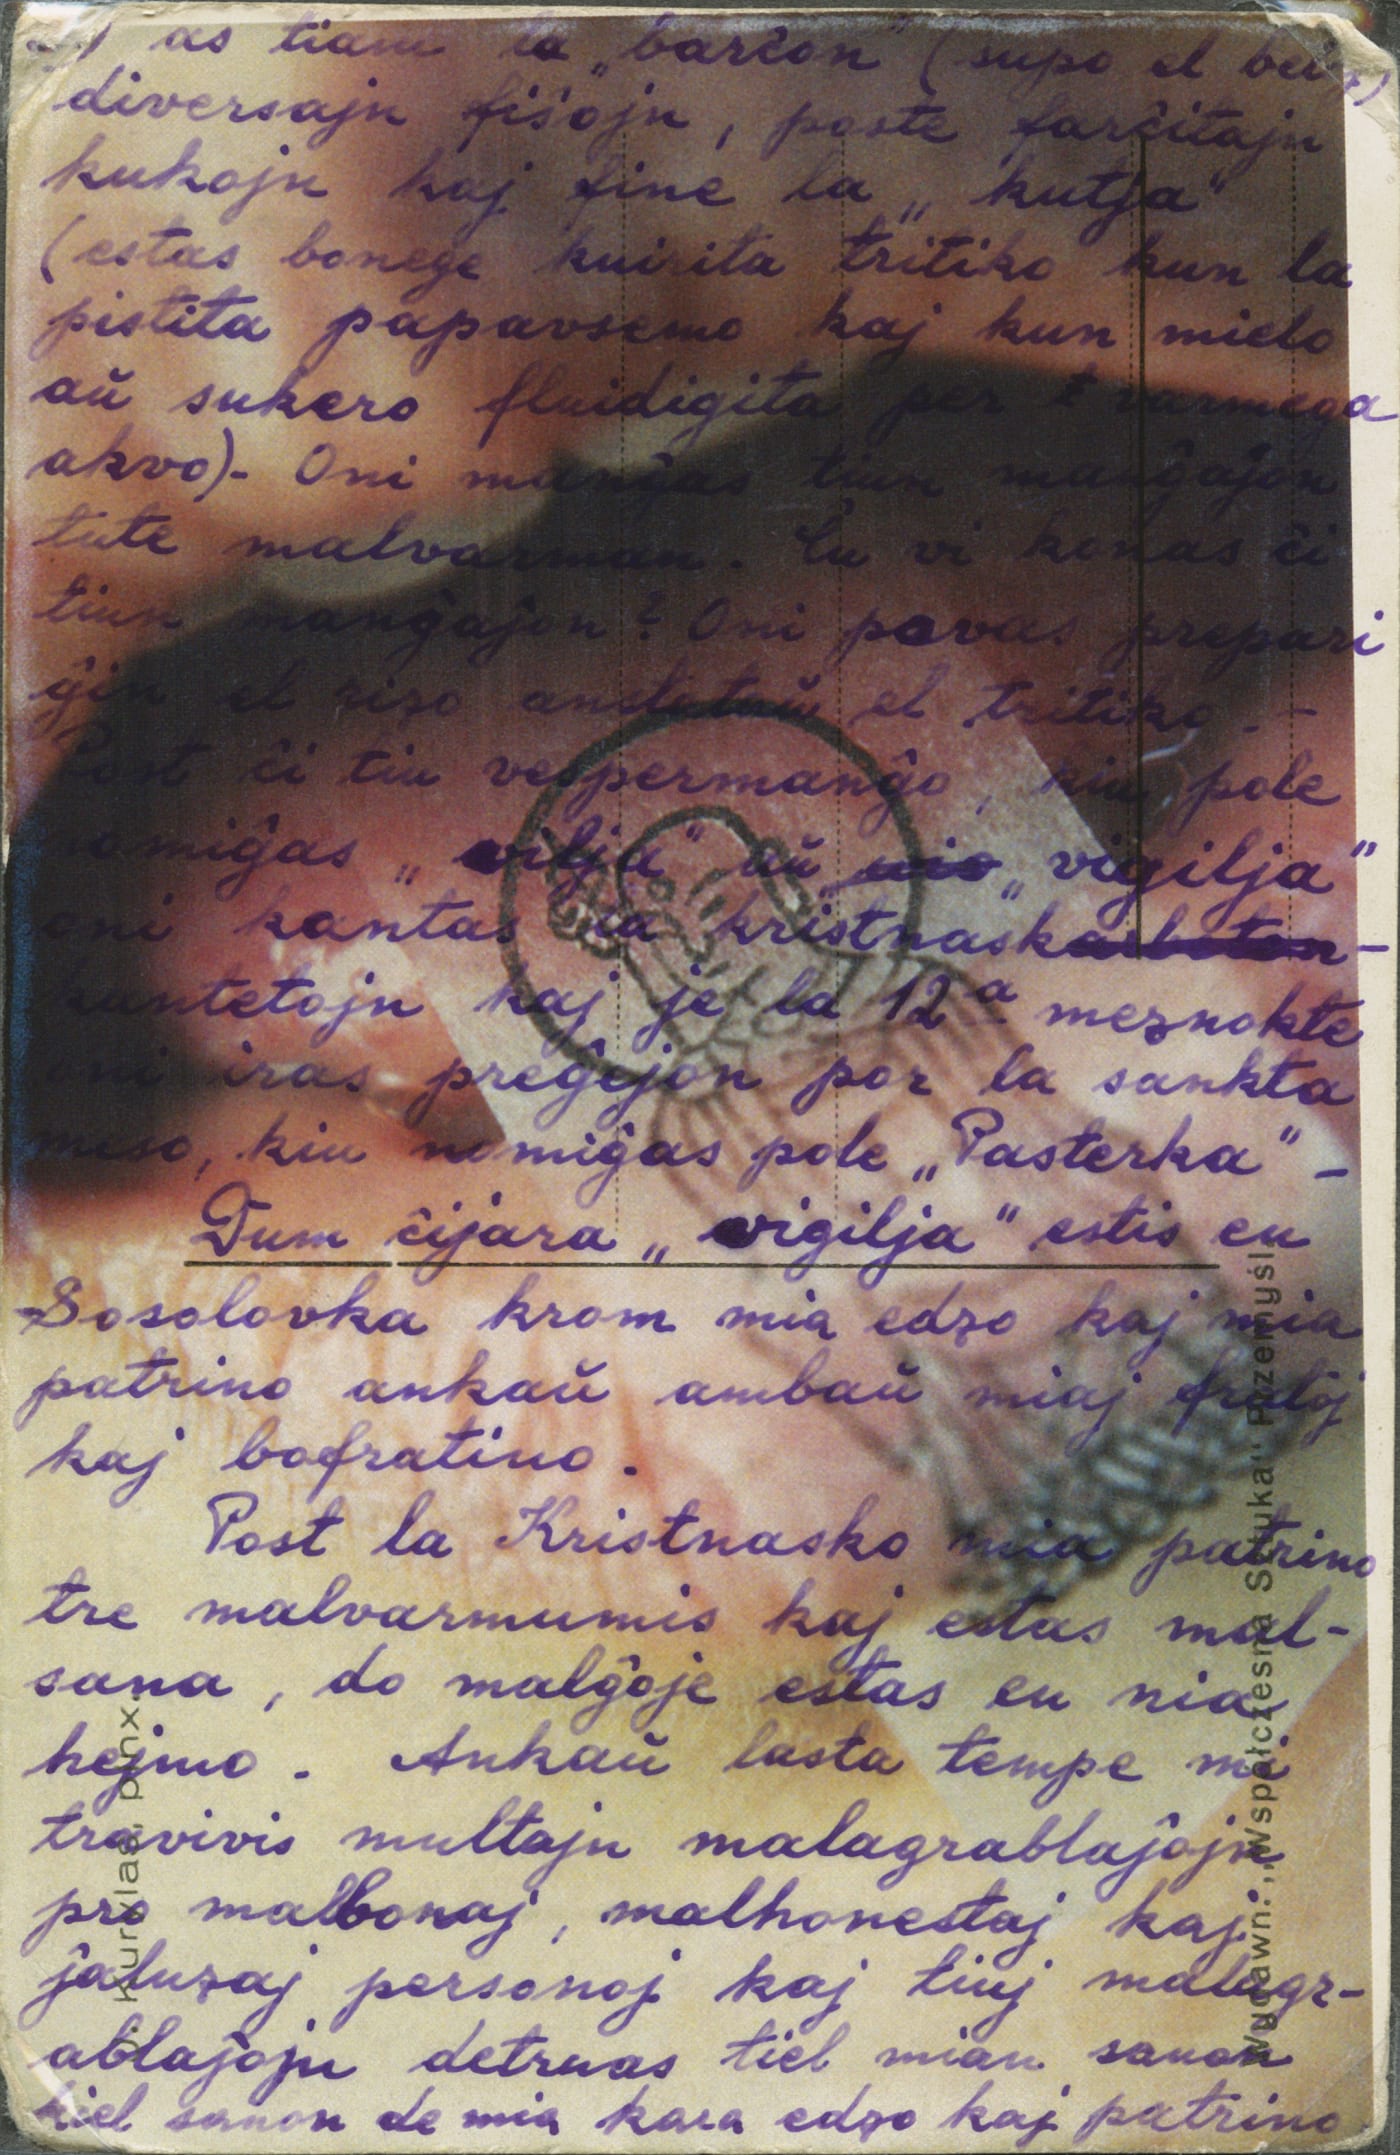 as tiam la „barĉon" (supo el
diversajn fiŝojn, poste farĉitajn
kukojn kaj fine la „kutja"
(estas bonege kuirita tritiko kun la
pistita papavsemo kaj kun mielo
aŭ sukero fluidigita per varmega
akvo)- Oni manĝas tiun manĝaĵon
tute malvarman. Ĉu vi konas ĉi
tiun manĝaĵon? Oni povas prepari
ĝin el rizo anstataŭ el tritiko.-
Post ĉi tiu vespermanĝo, kiu pole
nomiĝas „vilja" aŭ „vigilja"
oni kantas la kristnaska-
kantetojn kaj je la 12ª meznokte
oni iras preĝejon por la sankta
meso, kiu nomiĝas pole „Pasterka"-
Dum ĉijara „vigilja" estis en
Sosolovka krom mia edzo kaj mia
patrino ankaŭ ambaŭ miaj fratoj
kaj bofratino.
Post la Kristnasko mia patrino
tre malvarmumis kaj estas mal-
sana, do malĝoje estas en nia
hejmo. Ankaŭ lasta tempe mi
travivis multajn malagrablaĵojn
pro malbonaj, malhonestaj kaj
ĵaluzaj personoj kaj tiuj malagr-
ablaĵojn detruas tiel mian sanon
kiel sanon de mia kara edzo kaj patrino
pinx.
Wydawn.: „Współczesna Sztuka" Przemyśl